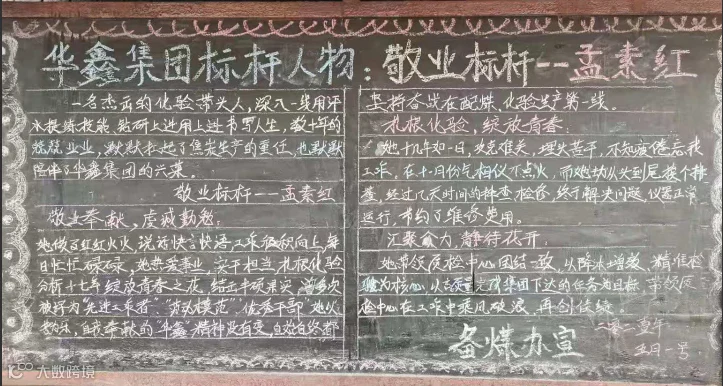 华鑫集团标杆人物：敬业标杆--孟素红
一名杰出的化验带头人，深入一线用汗
水提练技能，钻研上进用上进书写人生，数十年的
兢兢业业，默默扛起了焦炭生产的重任，也默默
陪伴了华鑫集团的兴荣。
敬业标杆---孟素红
敬业奉献，虔诚勤勉：
她做事红红火火，说话快言快语工作积极向上，每
日忙忙碌碌，她热爱事业，实干担当，扎根化验
分析十七年绽放青春之夜，结出丰硕果实，曾多次
被评为“先进工作者”“劳动模范”“优秀干部”她从
自我奉献的“华鑫”精神没有变，自始自终都
坚持奋战在配煤、化验生产第一线。
扎根化验，绽放青春：
她十几年如一日，攻克难关，埋头苦干，不知疲倦忘我
工作，在十一月份气相仪不点火，而她从头到尾挨个排
查，经过几天时间的排查检修，终于解决问题，仪器正常
运行，节约了维修费用。
汇聚众力，静待花开：
她带领质检中心团结一致，以降本增效，精准检
验为核心，以完成集团下达的任务为目标，带领质
检中心在工作中乘风破浪，再创佳绩。
备煤办宣
二零二
五月一号
大数跨境